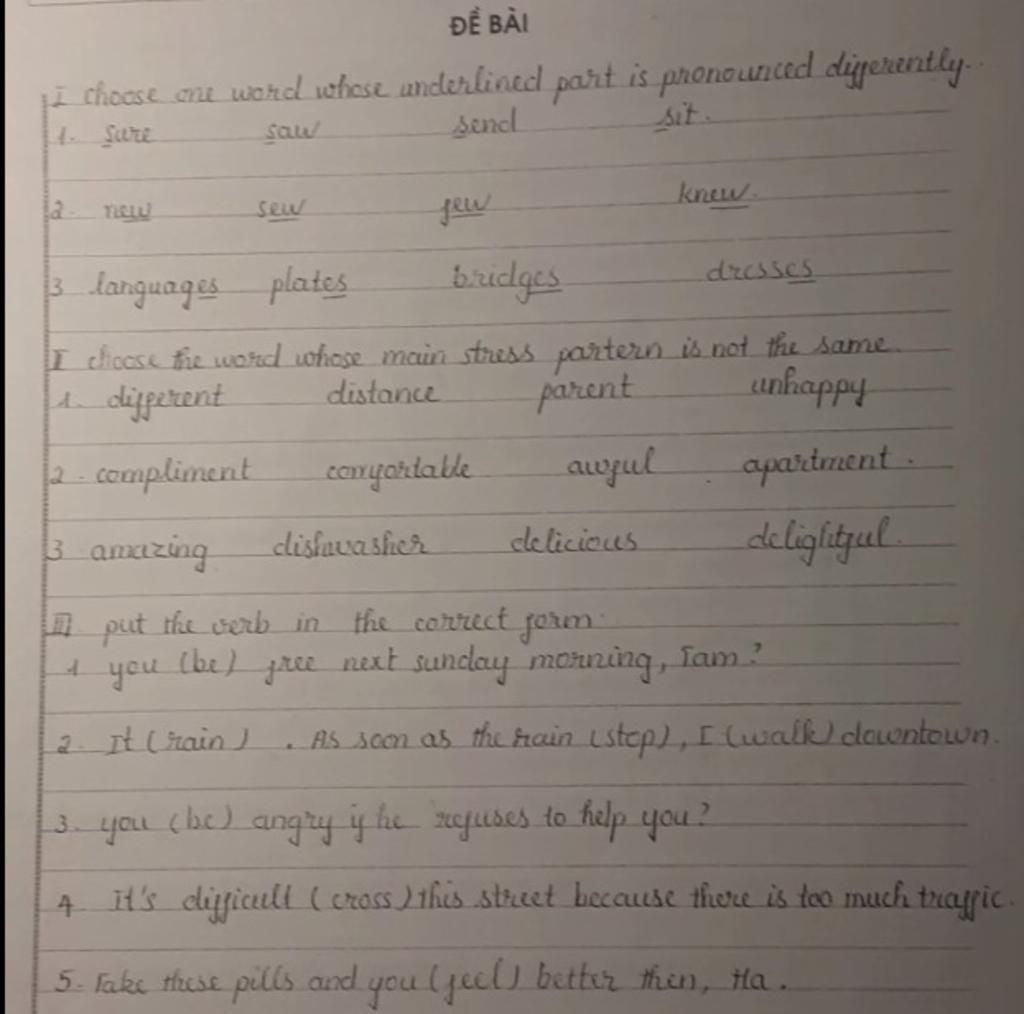 ĐỀ BÀI
I choose one word whose underlined part is pronounced differently.
1. sure saw send sit.
2. new sew few knew.
3 languages plates bridges dresses
I choose the word whose main stress partern is not the same.
1. different distance parent unhappy
2. compliment comfortable awful apartment.
3 amazing dishwasher delicious delightful.
III put the verb in the correct form.
1 you (be) free next sunday morning, Tam?
2. It (rain) . As soon as the rain (stop), I (walk) downtown.
3. you (be) angry if he refuses to help you?
4 It's difficult (cross) this street because there is too much traffic.
5. Take these pills and you (feel) better then, Ha.